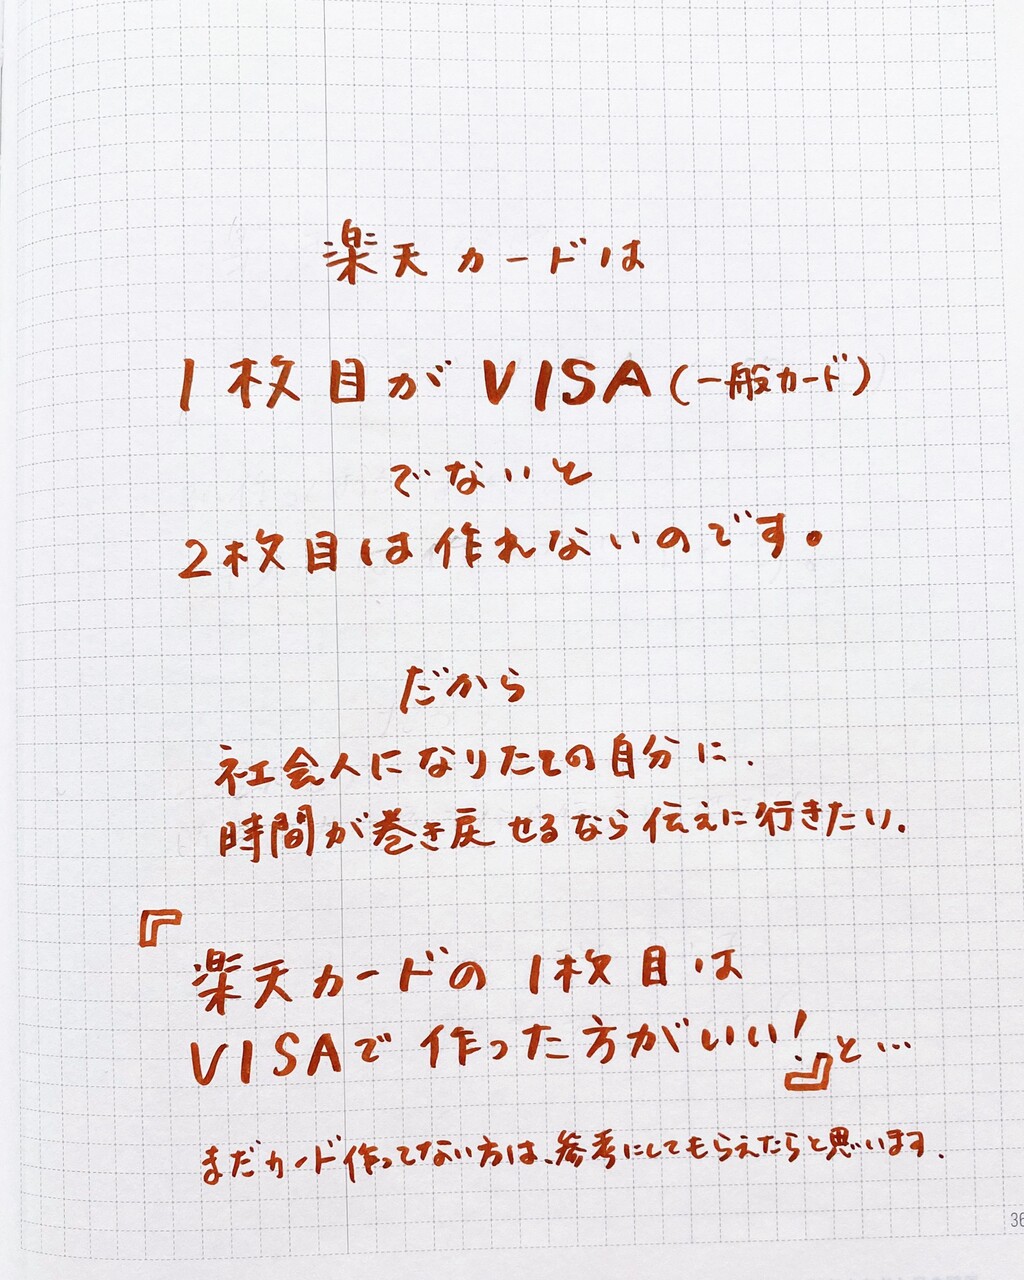 楽天カードは
1枚目がVISA(一般カード)
でないと
2枚目は作れないのです。
だから
社会人になりたての自分に.
時間が巻き戻せるなら伝えに行きたい.
『楽天カードの 1枚目は
VISAで作った方がいい!』と…
まだカード作ってない方は、参考にしてもらえたらと思います.
36